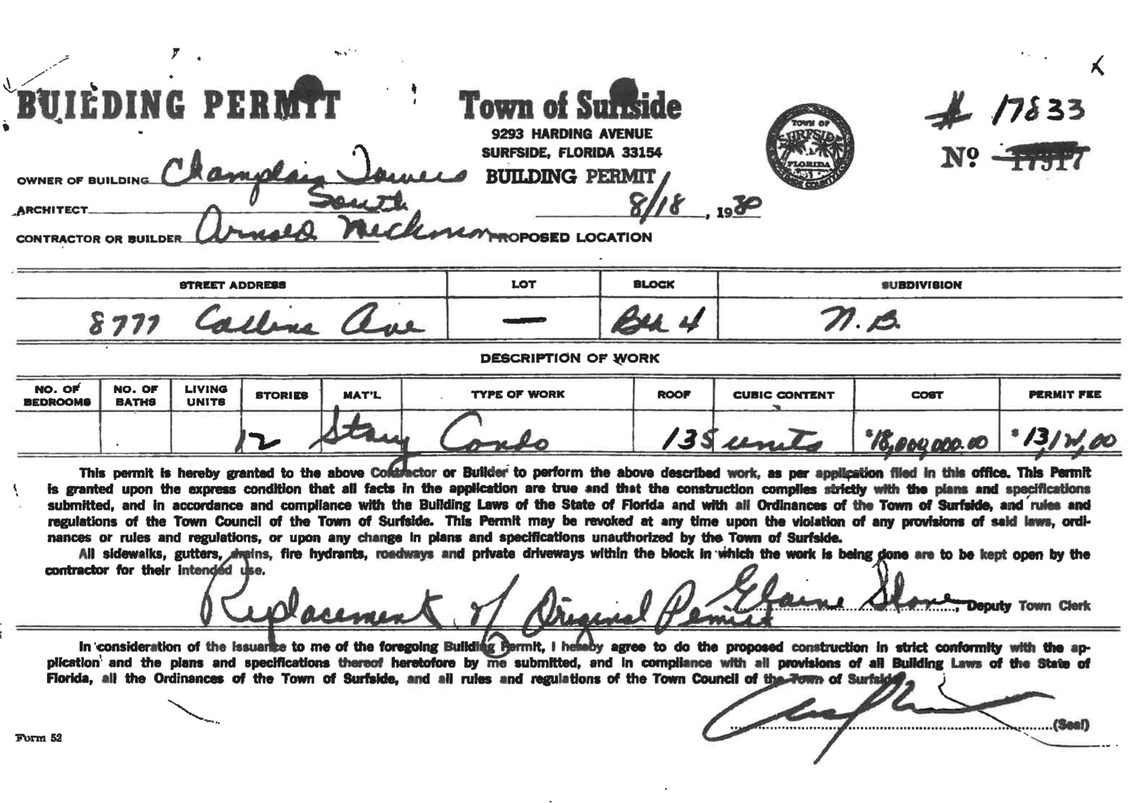 BUILDING PERMIT
Town of Surfside
9293 HARDING AVENUE
SURFSIDE, FLORIDA 33154
BUILDING PERMIT
TOWN OF
SURFSIDE
FLORIDA
# 17833
No 17317
OWNER OF BUILDING Champlain Towers
South
ARCHITECT
8/18, 1980
CONTRACTOR OR BUILDER Arnold
PROPOSED LOCATION
STREET ADDRESS LOT BLOCK SUBDIVISION
8777 Collins Ave — Blk 4 N.B.
DESCRIPTION OF WORK
NO. OF BEDROOMS NO. OF BATHS LIVING UNITS STORIES MAT'L TYPE OF WORK ROOF CUBIC CONTENT COST PERMIT FEE
12 Story Condo 135 units $18,000,000.00
This permit is hereby granted to the above Contractor or Builder to perform the above described work, as per application filed in this office. This Permit
is granted upon the express condition that all facts in the application are true and that the construction complies strictly with the plans and specifications
submitted, and in accordance and compliance with the Building Laws of the State of Florida and with all Ordinances of the Town of Surfside, and rules and
regulations of the Town Council of the Town of Surfside. This Permit may be revoked at any time upon the violation of any provisions of said laws, ordi-
nances or rules and regulations, or upon any change in plans and specifications unauthorized by the Town of Surfside.
All sidewalks, gutters, drains, fire hydrants, roadways and private driveways within the block in which the work is being done are to be kept open by the
contractor for their intended use.
Replacement of Original Permit
Elaine Stone, Deputy Town Clerk
In consideration of the issuance to me of the foregoing Building Permit, I hereby agree to do the proposed construction in strict conformity with the ap-
plication and the plans and specifications thereof heretofore by me submitted, and in compliance with all provisions of all Building Laws of the State of
Florida, all the Ordinances of the Town of Surfside, and all rules and regulations of the Town Council of the Town of Surfside.
(Seal)
Form 52